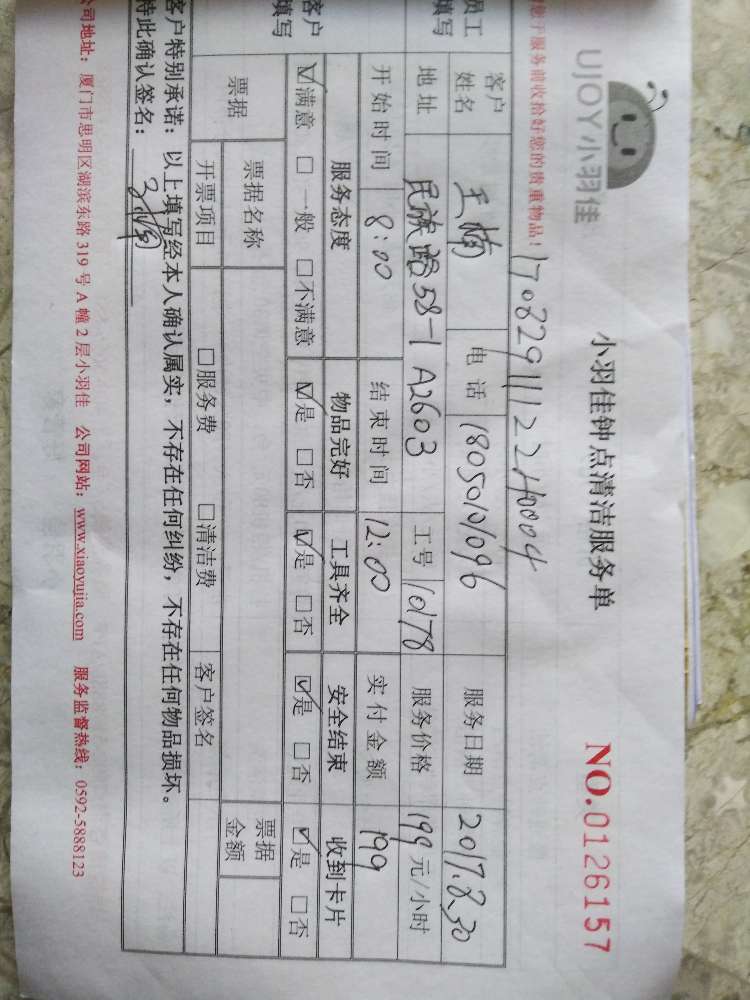 UJOY小羽佳
小羽佳钟点清洁服务单
NO.0126157
您于服务前收拾好您的贵重物品!
1708291112240004
员工 填写
客户姓名 王楠 电话 18050101096 服务日期 2017.8.30
地址 民族路58-1 A2603 工号 10178 服务价格 199元/小时
开始时间 8:00 结束时间 12:00 实付金额 199
客户 填写
服务态度 物品完好 工具齐全 安全结束 收到卡片
☑满意 □一般 □不满意 ☑是 □否 ☑是 □否 ☑是 □否 ☑是 □否
票据 票据名称 票据金额
开票项目 □服务费 □清洁费 客户签名
客户特别承诺：以上填写经本人确认属实，不存在任何纠纷，不存在任何物品损坏。
持此确认签名：
公司地址：厦门市思明区湖滨东路319号A幢2层小羽佳 公司网站：www.xiaoyujia.com 服务监督热线：0592-5888123